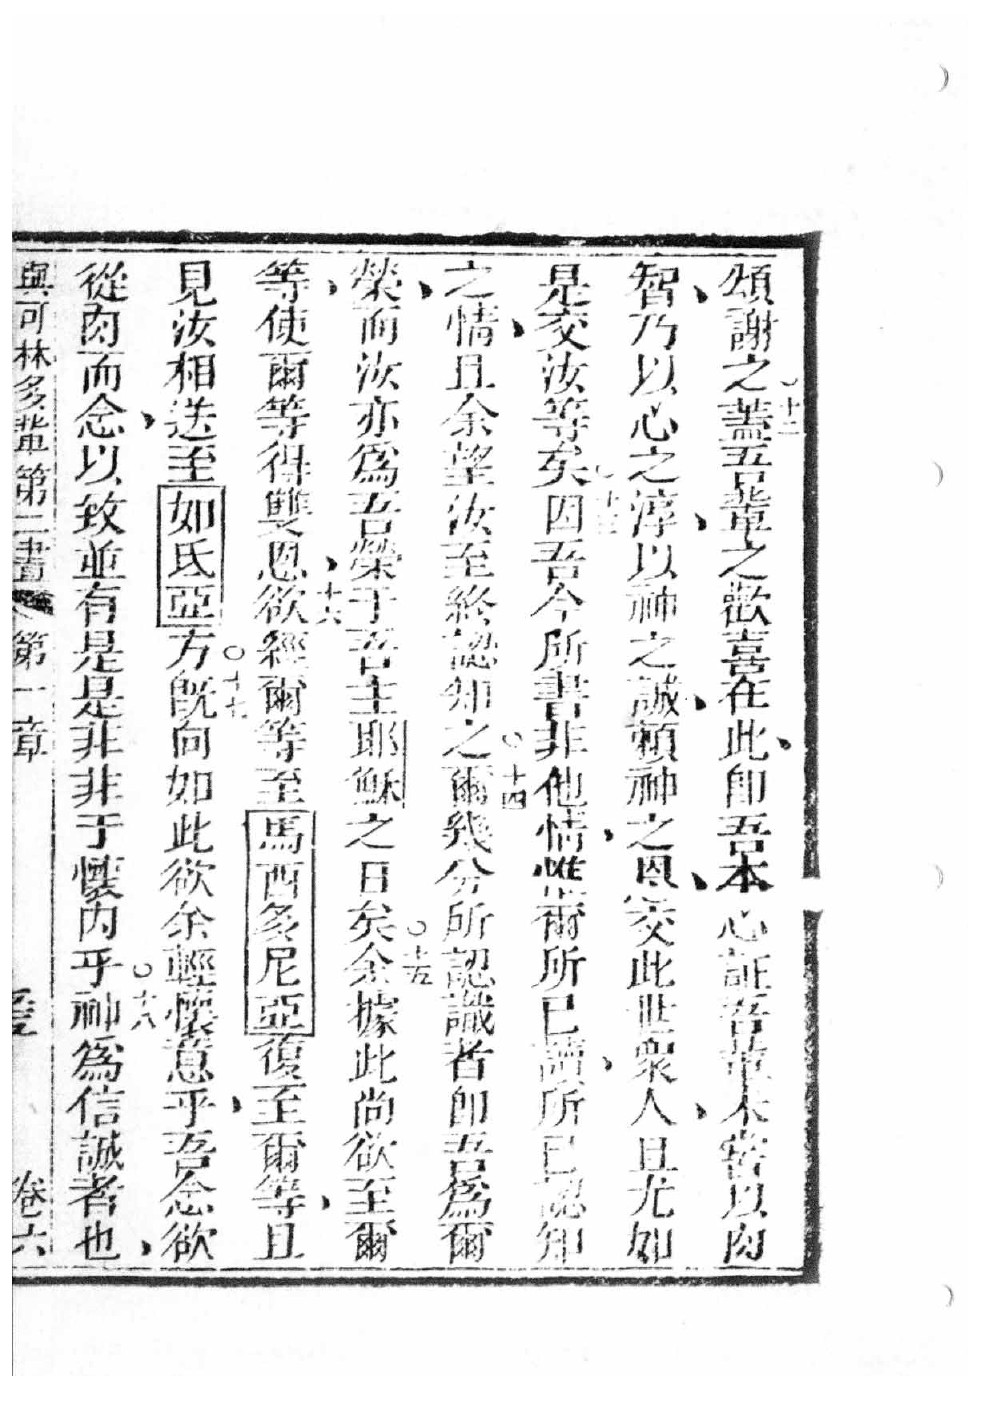 頌謝之十二蓋吾輩之歡喜在此即吾本心証吾輩未嘗以肉
智乃以心之淳以神之誠賴神之恩交此世衆人且尤如
是交汝等矣十三因吾今所書非他情惟爾所已讀所已認知
之情且余望汝至終認知之十四爾幾分所認識者即吾爲爾
榮而汝亦爲吾榮于吾主耶穌之日矣十五余據此尚欲至爾
等使爾等得雙恩十六欲經爾等至馬西多尼亞復至爾等且
見汝相送至如氐亞方十七旣向如此欲余輕懷意乎吾念欲
從肉而念以致並有是是非非于懷內乎十八神爲信誠者也
與可林多輩第二書 第一章 卷六